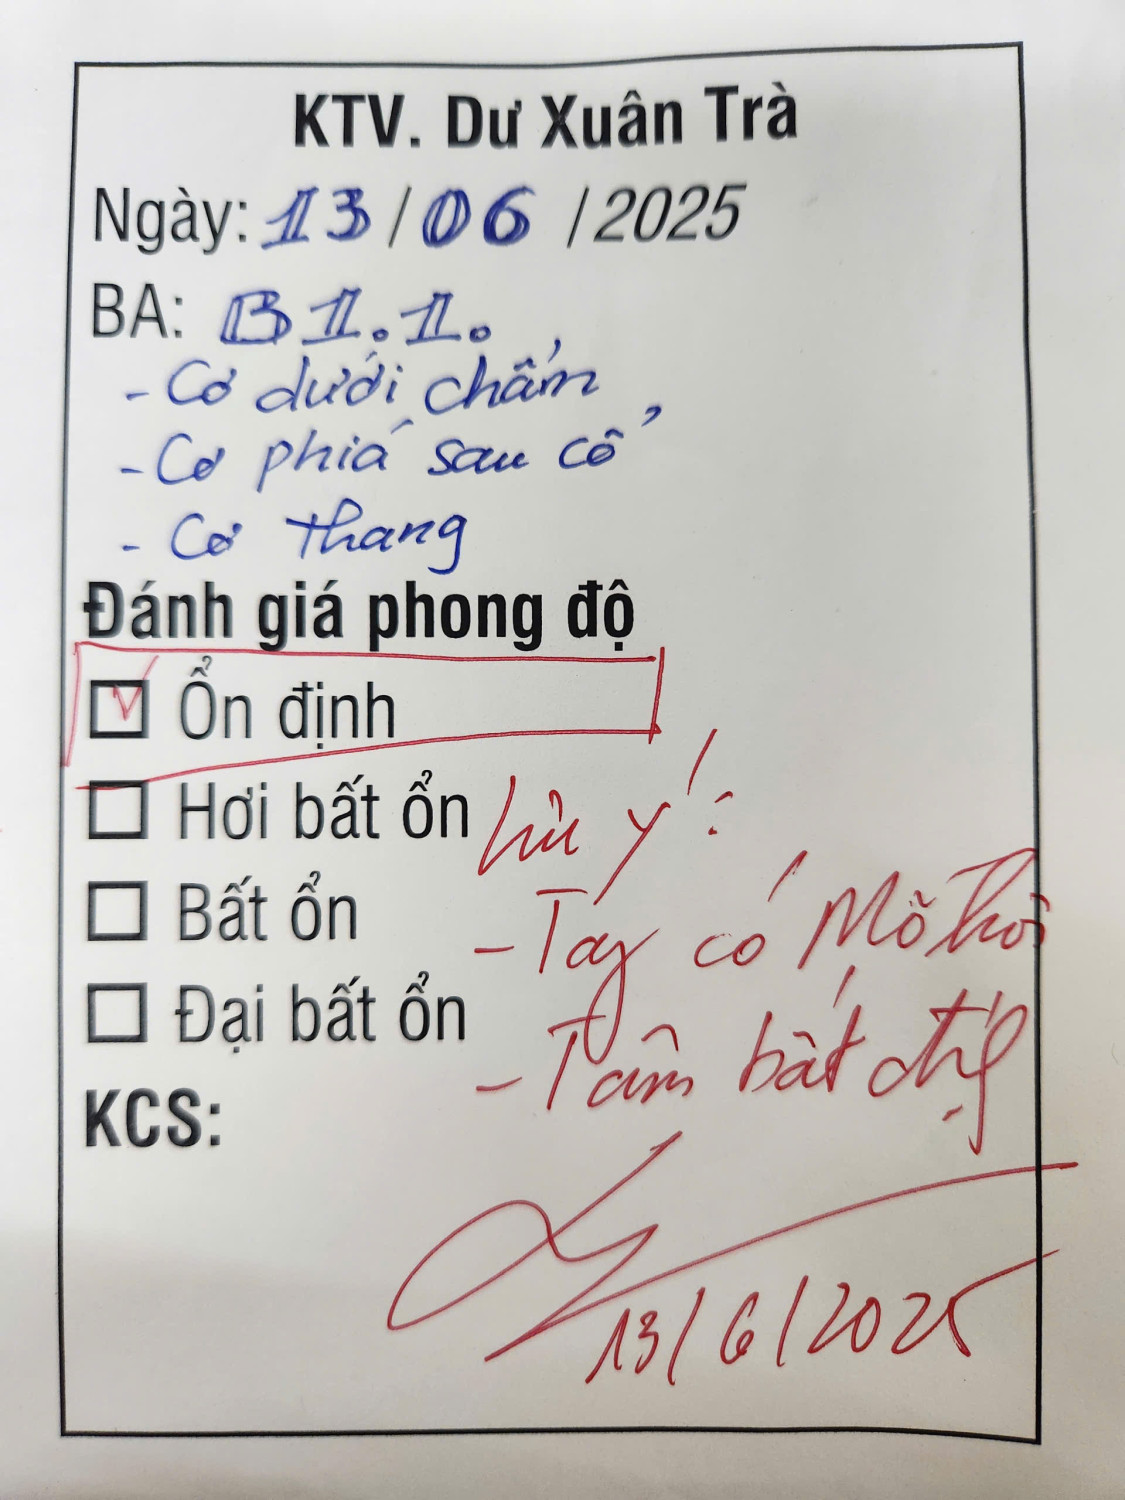 KTV. Dư Xuân Trà
Ngày: 13/06/2025
BA: B1.1.
- Cơ dưới chẩm
- Cơ phía sau cổ
- Cơ thang
Đánh giá phong độ
Ổn định
Hơi bất ổn
Lưu ý:
Bất ổn
- Tay có Mồ hôi
Đại bất ổn
- Tâm bất định
KCS:
13/6/2025